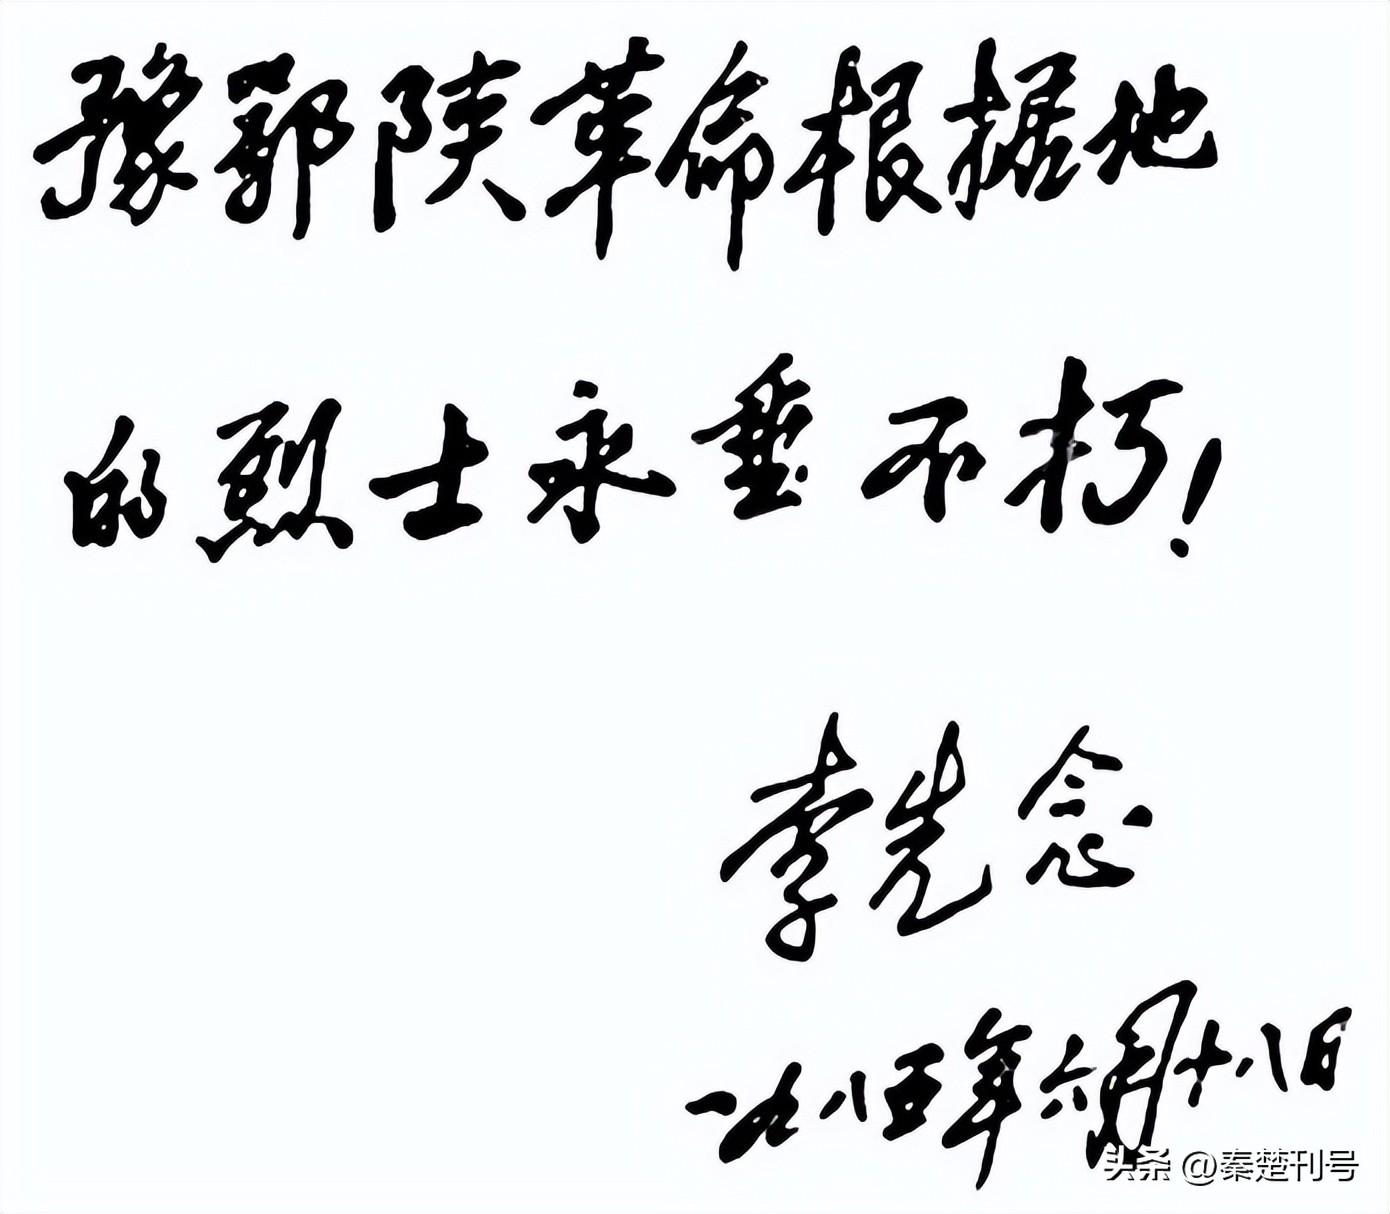 豫鄂陕革命根据地
的烈士永垂不朽！
李先念
一九八五年六月十八日
头条 @秦楚刊号